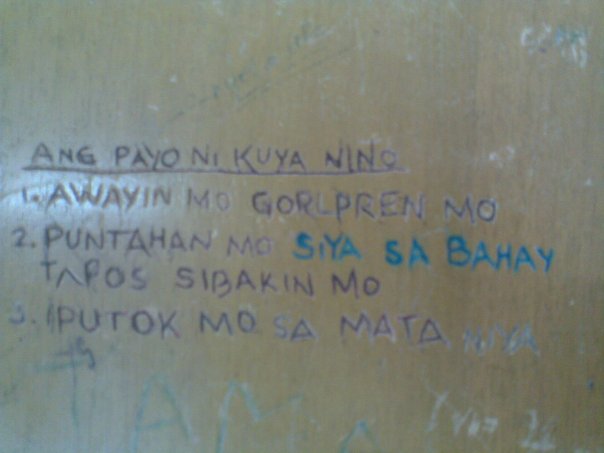 ANG PAYO NI KUYA NINO
1. AWAYIN MO GORLPREN MO
2. PUNTAHAN MO SIYA SA BAHAY
TAPOS SIBAKIN MO
3. IPUTOK MO SA MATA NIYA